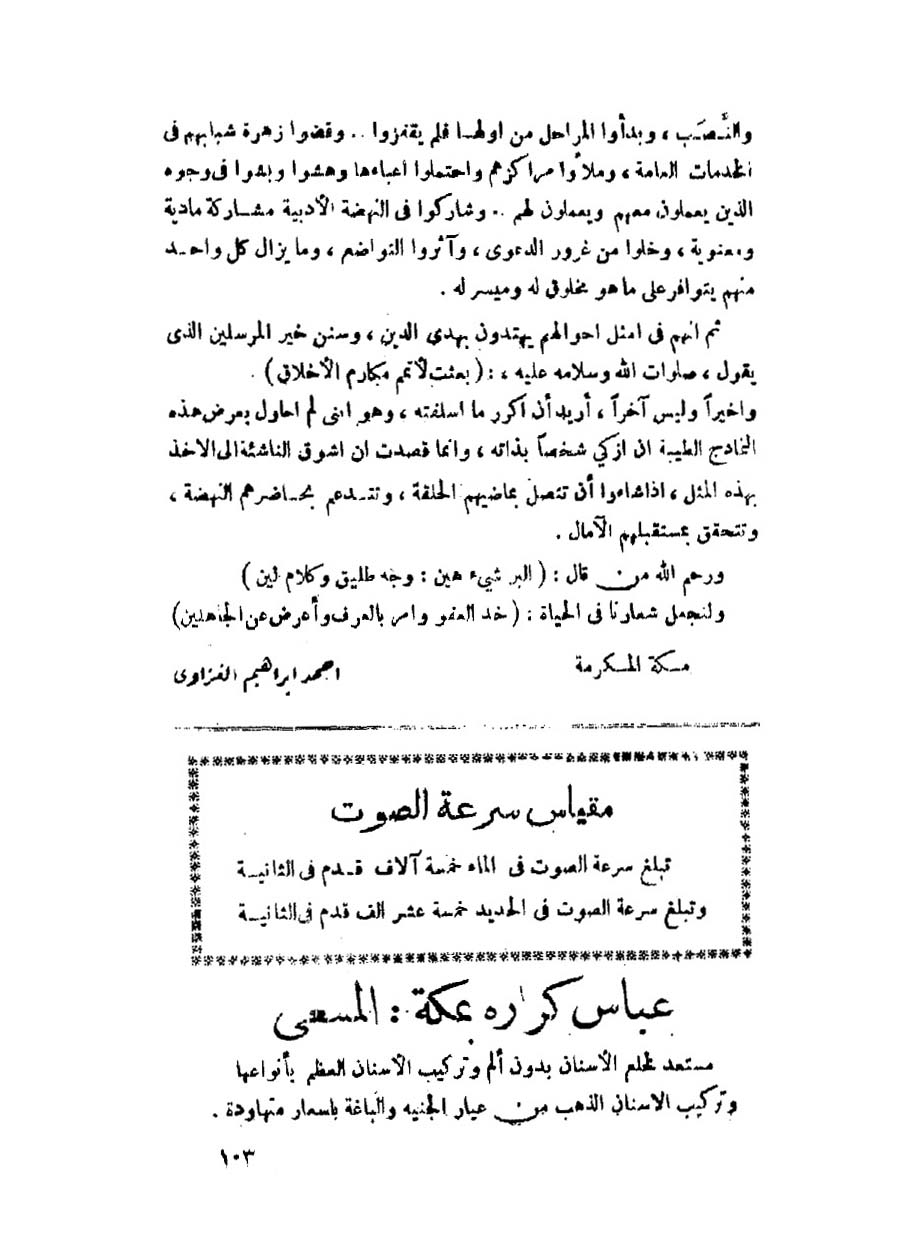 والنَّصَب ، وبدأوا المراحل من اولهـا فلم يقفزوا .. وقضوا زهرة شبابهم فى
الخدمات العامة ، وملأوا مراكزهم واحتملوا اعباءها وهشوا وبشوا فى وجوه
الذين يعملون معهم ويعملون لهم .. وشاركوا فى النهضة الأدبية مشـاركة مادية
ومعنوية ، وخلوا من غرور الدعوى ، وآثروا التواضع ، وما يزال كل واحـد
منهم يتوافر على ما هو مخلوق له وميسر له .
ثم انهم فى امثل احوالهم يهتدون بهدى الدين ، وسنن خير المرسلين الذى
يقول ، صلوات الله وسلامه عليه ، : ( بعثت لأتمم مكارم الأخلاق ) .
واخيراً وليس آخراً ، أريد أن اكرر ما اسلفته ، وهو اننى لم احاول بعرض هذه
النماذج الطيبة ان ازكي شخصاً بذاته ، وانما قصدت ان اشوق الناشئة الى الاخذ
بهذه المثل ، اذا شاءوا أن تتصل بماضيهم الحلقة ، وتتـدعم بحـاضرهم النهضة ،
وتتحقق بمستقبلهم الآمال .
ورحم الله من قال : ( البر شيء هين : وجه طليق وكلام لين )
ولنجعل شعارنا فى الحياة : ( خد العفو وامر بالعرف وأعرض عن الجاهلين )
مـكة المـكرمة
احمد ابراهيم الغزاوى
مقياس سرعة الصوت
تبلغ سرعة الصوت فى الماء خمسة آلاف قـدم فى الثانيـة
وتبلغ سرعة الصوت فى الحديد خمسة عشر الف قدم فى الثانيـة
عباس كراره بمكة : المسعى
مستعد لخلع الأسنان بدون ألم وتركيب الأسنان العظم بأنواعها
وتركيب الاسنان الذهب من عيار الجنيه والباغة باسعار متهاودة .
١٠٣